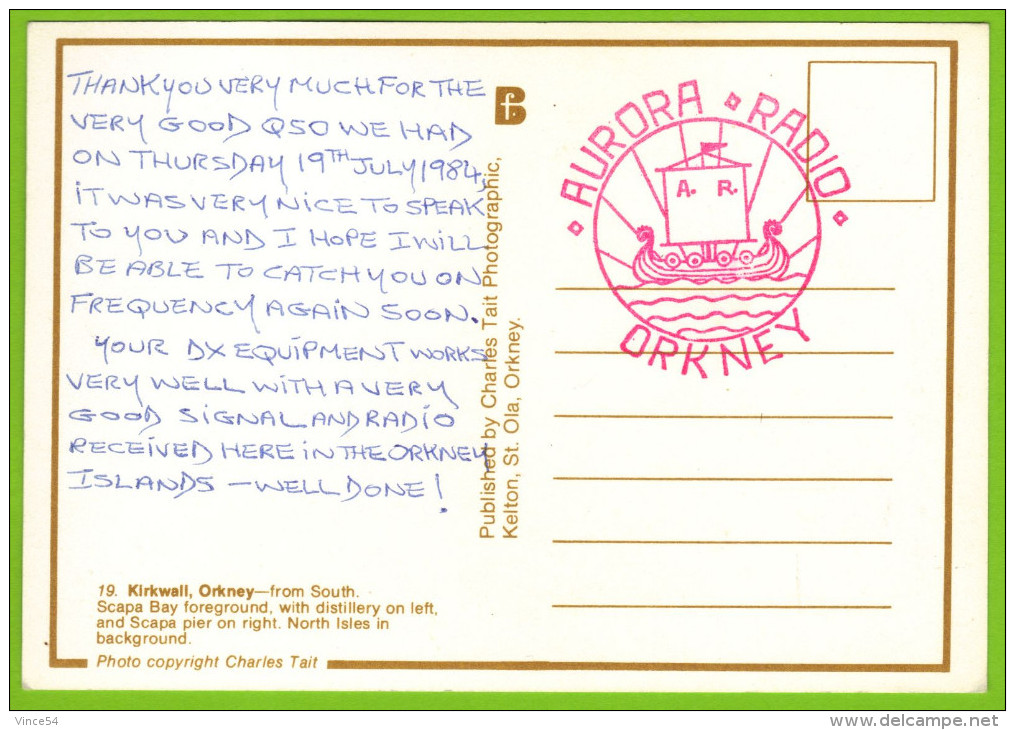 THANK YOU VERY MUCH FOR THE
VERY GOOD QSO WE HAD
ON THURSDAY 19TH JULY 1984,
IT WAS VERY NICE TO SPEAK
TO YOU AND I HOPE I WILL
BE ABLE TO CATCH YOU ON
FREQUENCY AGAIN SOON.
YOUR DX EQUIPMENT WORKS
VERY WELL WITH A VERY
GOOD SIGNAL AND RADIO
RECEIVED HERE IN THE ORKNEY
ISLANDS - WELL DONE!
19. Kirkwall, Orkney—from South.
Scapa Bay foreground, with distillery on left,
and Scapa pier on right. North Isles in
background.
Photo copyright Charles Tait
fB
Published by Charles Tait Photographic,
Kelton, St. Ola, Orkney.
AURORA RADIO
A. R.
ORKNEY
Vince54
delcampe.net